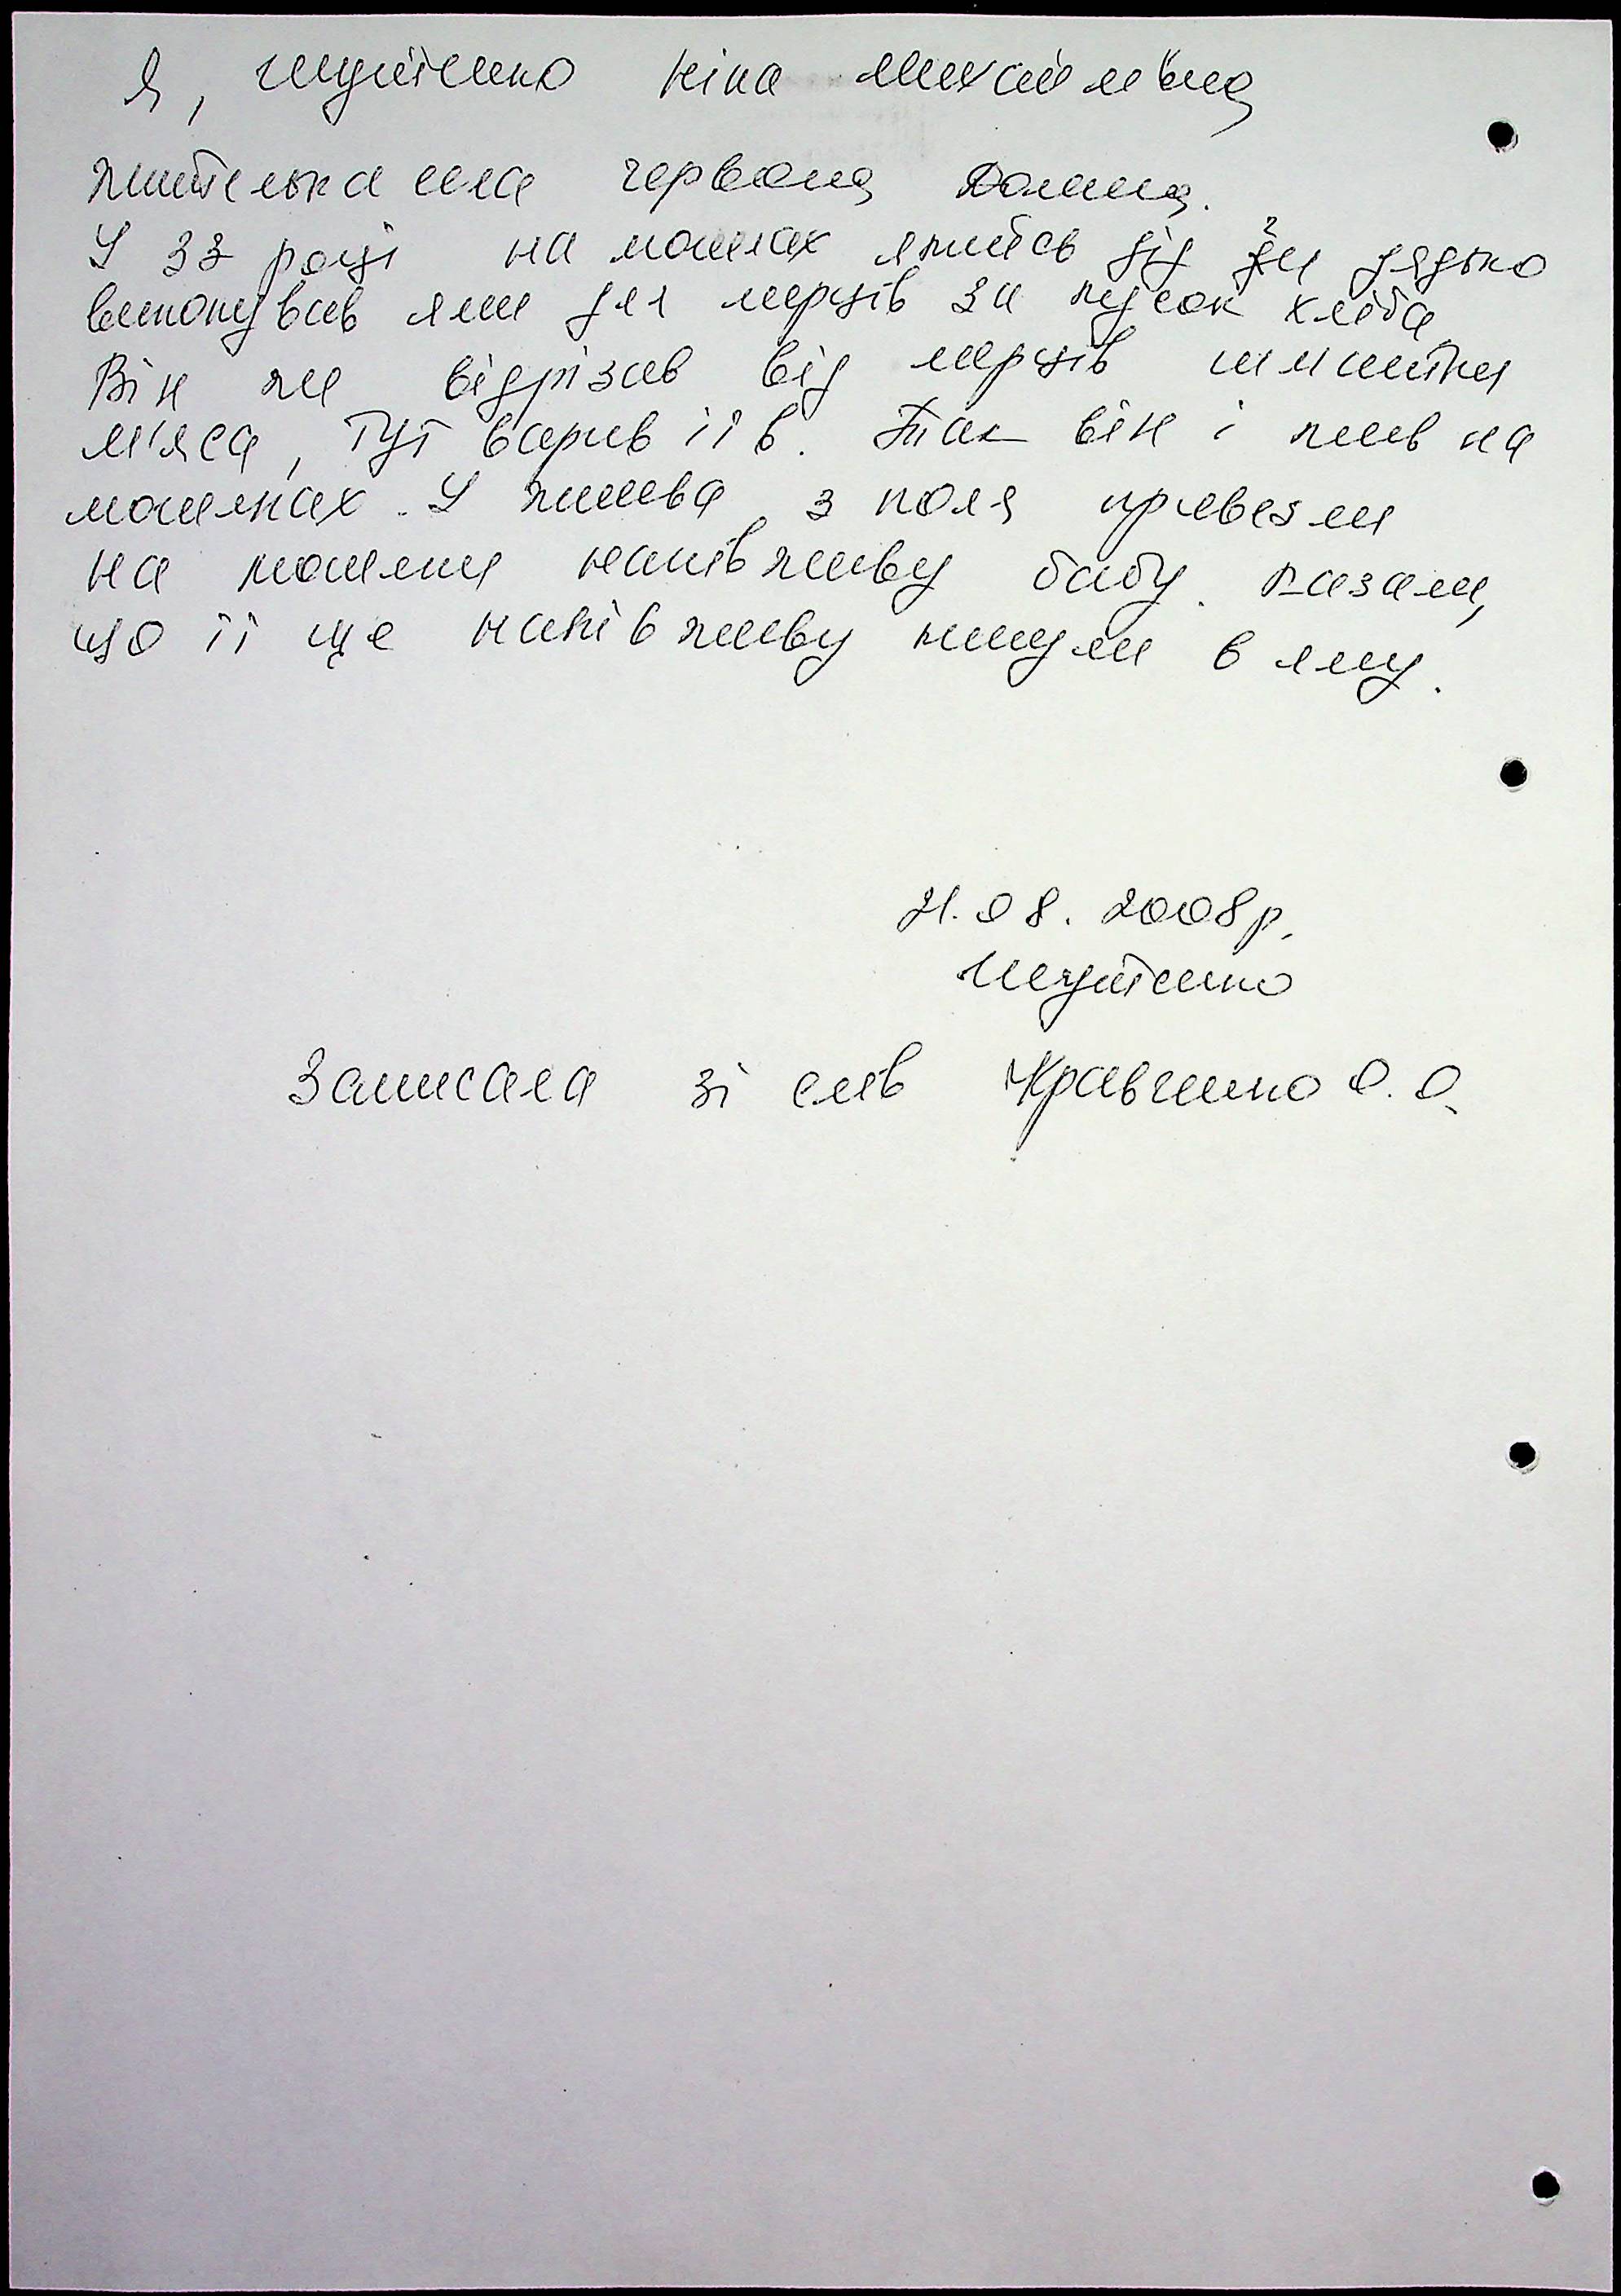 Я, Ніна Михайлівна
жителька села Червона Долина.
У 33 році на могилах якийсь дід чи дядько
викопував ями для мерців за кусок хліба
Він же відрізав від мерців шматки
м'яса, тут варив і їв. Так він і жив на
могилках. У жнива з поля привезли
на могили напівживу бабу. Казали,
що її ще напівживу кинули в яму.
21.08.2008р.
Записала зі слів Кравченко О. О.